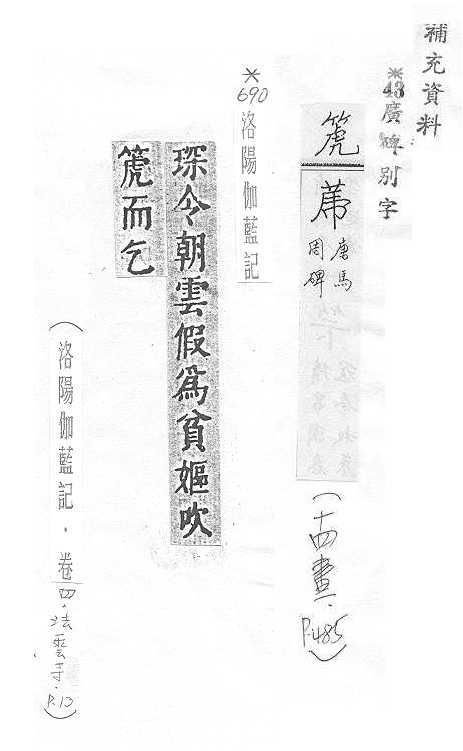 補充資料
*43廣碑別字
箎
唐馬
周碑
(十四畫·P.485)
*690洛陽伽藍記
琛令朝雲假爲貧嫗吹
箎而乞
(洛陽伽藍記·卷四·法雲寺·P.13)